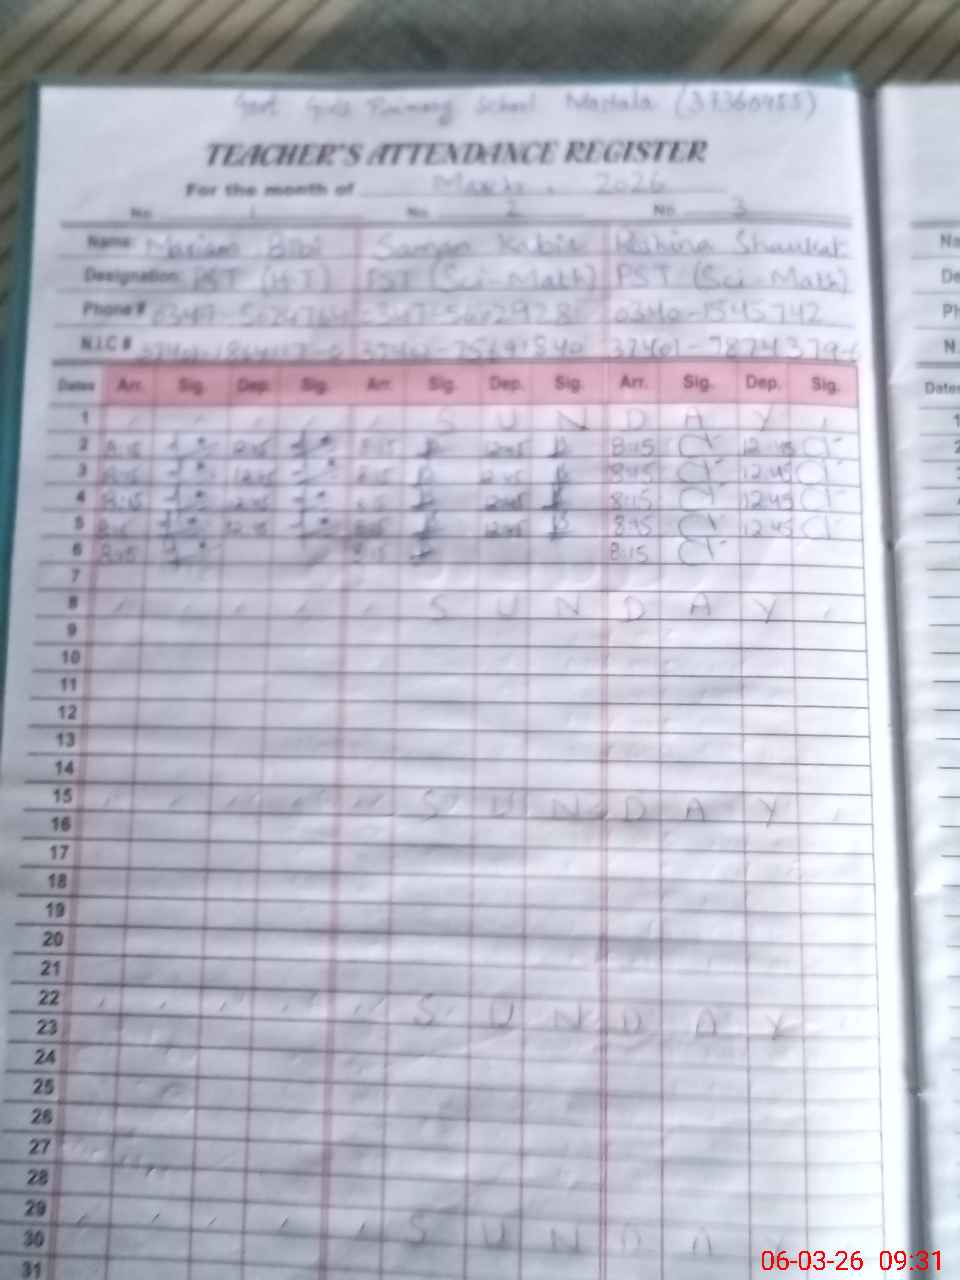 Govt Girls Primary School Mastala (37360455)
TEACHER'S ATTENDANCE REGISTER
For the month of March, 2026
No 1 No. 2 No. 3
Name: Mariam Bibi Saman Kabir Shaukat
Designation: PST (H.T) PST (Sci-Math) PST (Sci-Math)
Phone # 0340-1545742
N.I.C #
Dates Arr. Sig. Dep. Sig. Arr. Sig. Dep. Sig. Arr. Sig. Dep. Sig.
1 S U N D A Y
2 8:15 12:45 8:15 12:45 8:15 12:45
3 8:15 12:45 8:15 12:45 8:15 12:45
4 8:15 12:45 8:15 12:45 8:15 12:45
5 8:15 12:45 8:15 12:45 8:15 12:45
6 8:15 8:15 8:15
7
8 S U N D A Y
9
10
11
12
13
14
15 S U N D A Y
16
17
18
19
20
21
22 S U N D A Y
23
24
25
26
27
28
29 S U N D A Y
30
31
Na
De
Ph
N.
Dates
1
2
3
06-03-26 09:31